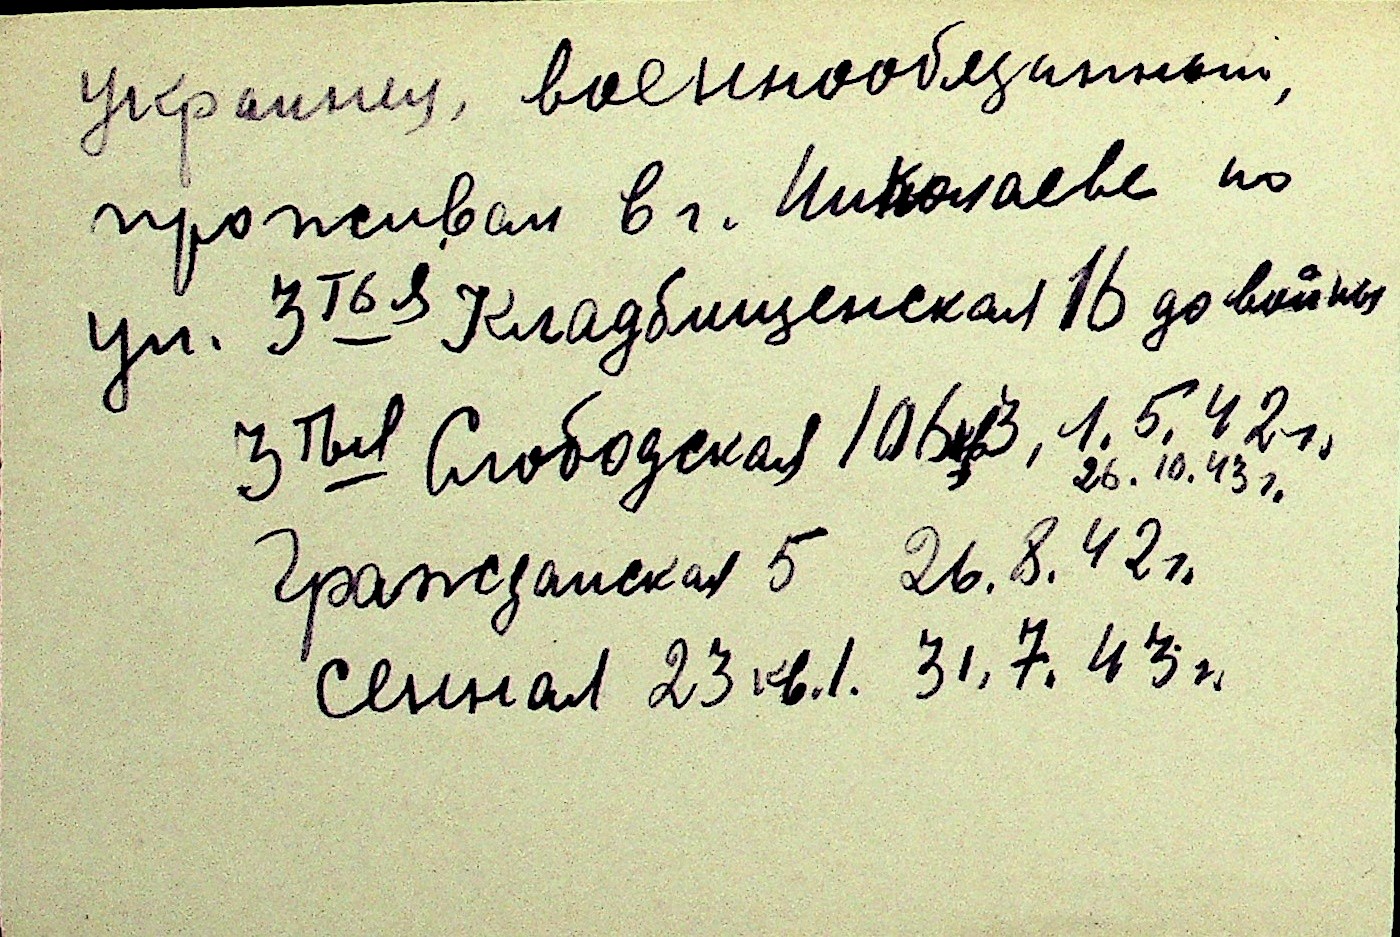 Украинец, военнообязанный,
проживал в г. Николаеве по
ул. 3тья Кладбищенская 16 до войны
3тья Слободская 106 3, 1.5.42г.
26.10.43г.
Гражданская 5 26.8.42г.
Сенная 23 кв.1. 31.7.43г.